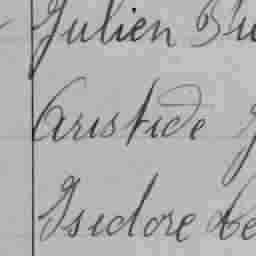 Julien
Aristide
Isidore